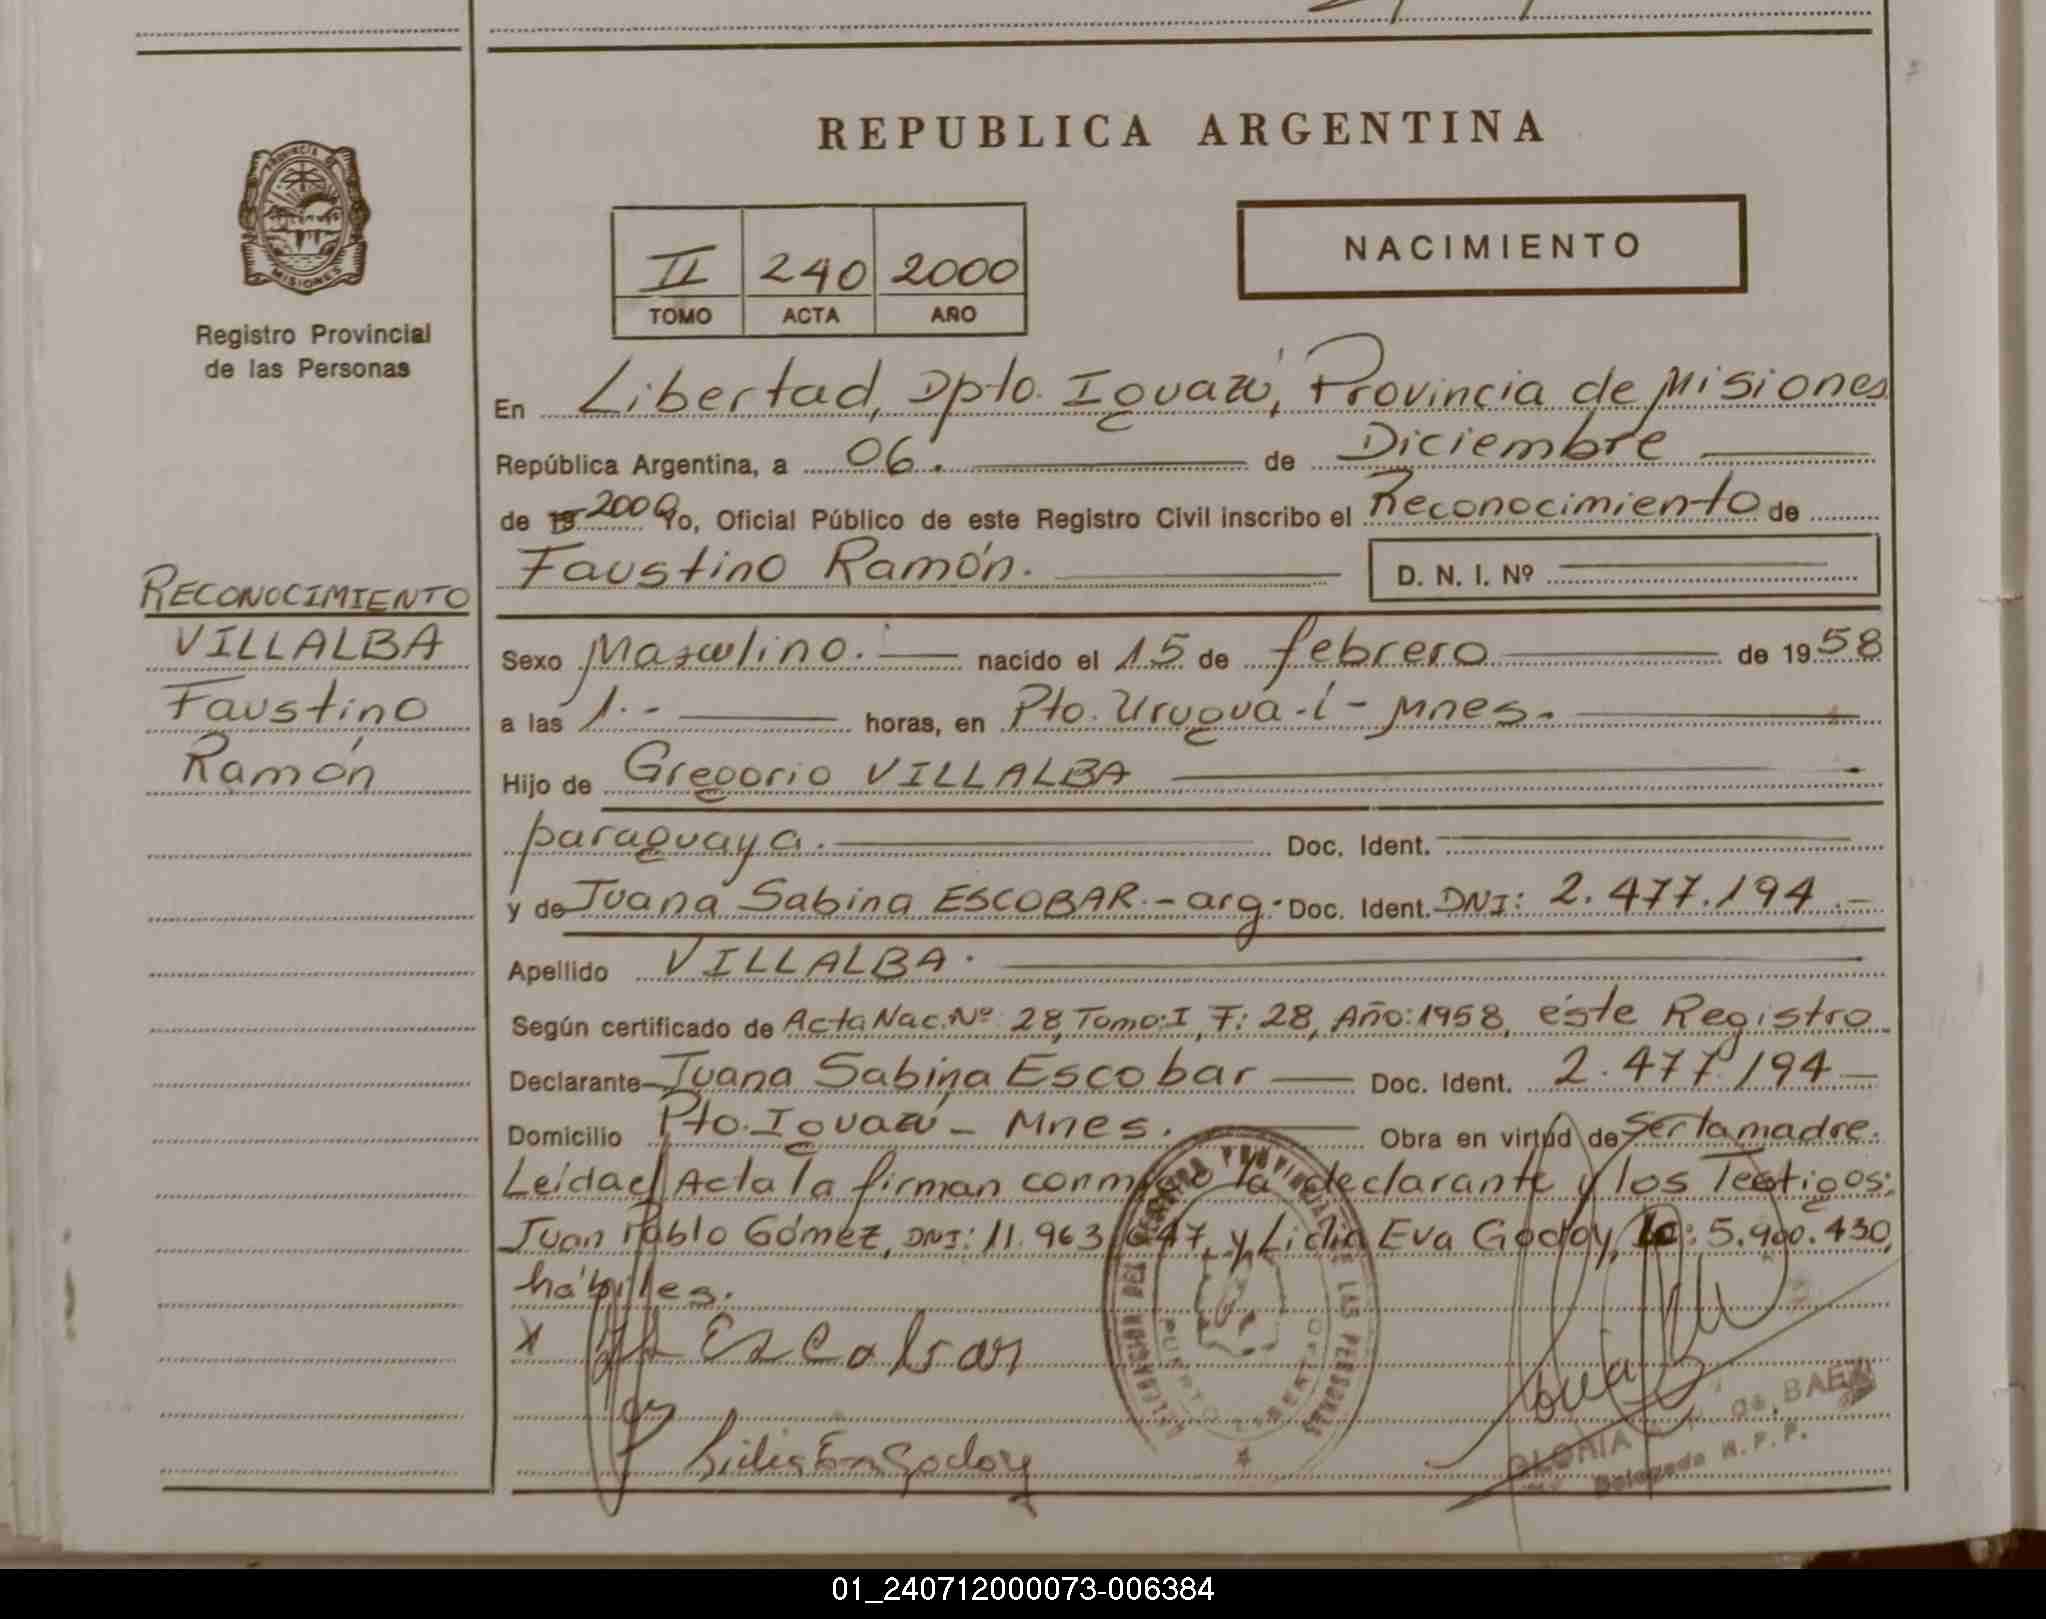 REPUBLICA ARGENTINA
PROVINCIA DE
MISIONES
Registro Provincial
de las Personas
II 240 2000
TOMO ACTA AÑO
NACIMIENTO
En Libertad, Dpto. Iguazú, Provincia de Misiones
República Argentina, a 06. de Diciembre
de 19 2000 Yo, Oficial Público de este Registro Civil inscribo el Reconocimiento de
Faustino Ramón. D. N. I. Nº
RECONOCIMIENTO
VILLALBA
Faustino
Ramón
Sexo Masculino. nacido el 15 de febrero de 1958
a las 1.- horas, en Pto. Urugua-í - Mnes.
Hijo de Gregorio VILLALBA
paraguaya. Doc. Ident.
y de Juana Sabina ESCOBAR.- arg. Doc. Ident. DNI: 2.477.194.-
Apellido VILLALBA.
Según certificado de Acta Nac. Nº 28, Tomo: I, F: 28, Año: 1958, éste Registro
Declarante Juana Sabina Escobar Doc. Ident. 2.477.194
Domicilio Pto. Iguazú - Mnes. Obra en virtud de Ser la madre.
Leída el Acta la firman conmigo la declarante y los Testigos:
Juan Pablo Gómez, DNI: 11.963.647, y Lidia Eva Godoy, LC: 5.900.430,
hábiles.
x Escobar
Lidia Eva Godoy
DELEGACION DEL REGISTRO PROVINCIAL DE LAS PERSONAS
PUERTO LIBERTAD
GLORIA de BAEZ
Delegada R.P.P.
01_240712000073-006384